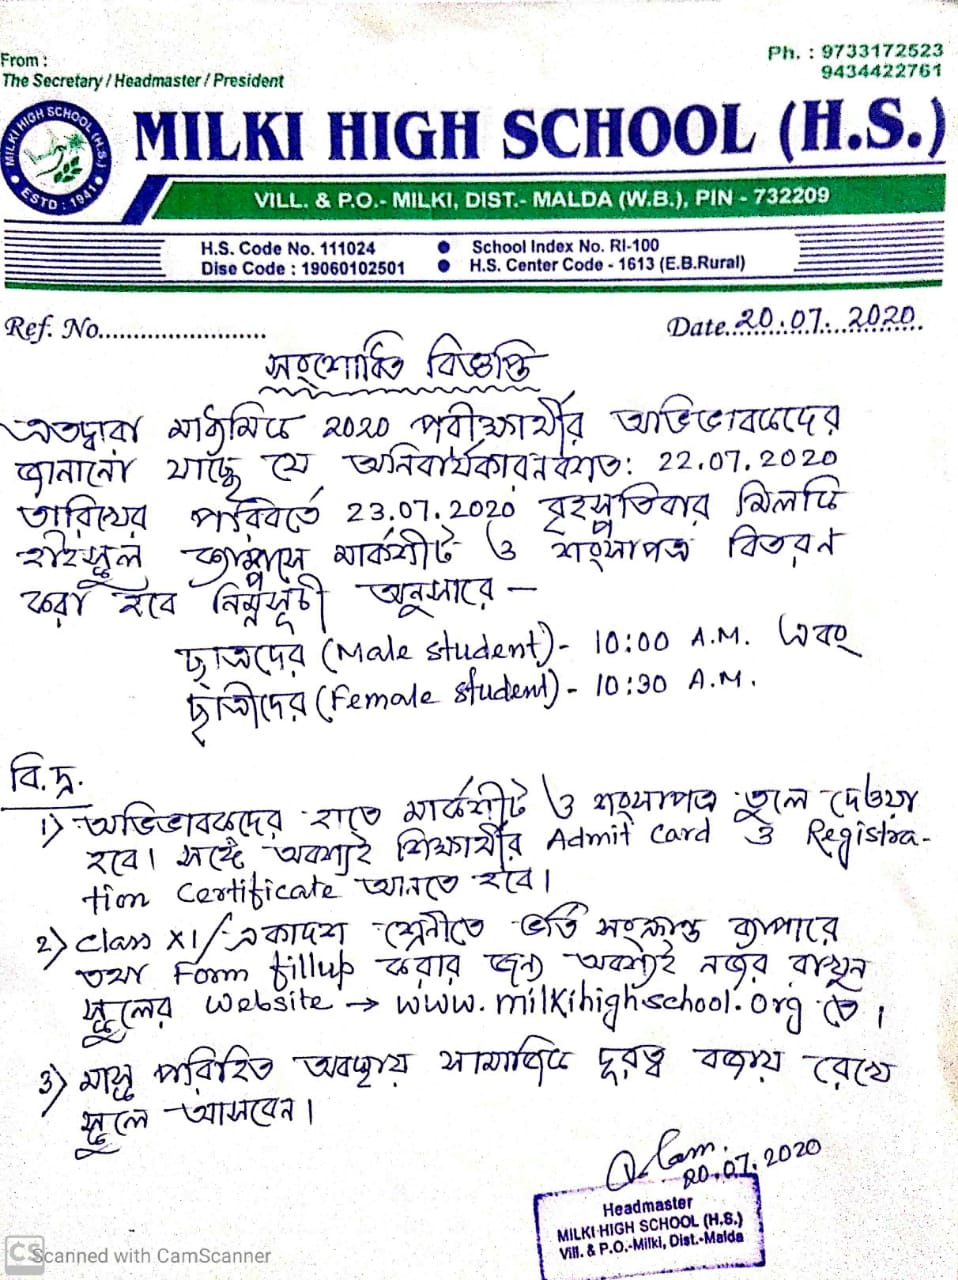 From :
The Secretary / Headmaster / President
Ph. : 9733172523
9434422761
MILKI HIGH SCHOOL (H.S.)
MILKI HIGH SCHOOL (H.S.)
ESTD : 1941
VILL. & P.O.- MILKI, DIST.- MALDA (W.B.), PIN - 732209
H.S. Code No. 111024 ● School Index No. RI-100
Dise Code : 19060102501 ● H.S. Center Code - 1613 (E.B.Rural)
Ref. No........................
Date..20.07.2020.
সংশোধিত বিজ্ঞপ্তি
এতদ্বারা মাধ্যমিক 2020 পরীক্ষার্থীর অভিভাবকদের
জানানো যাচ্ছে যে অনিবার্যকারনবশত: 22.07.2020
তারিখের পরিবর্তে 23.07.2020 বৃহস্পতিবার মিলকি
হাইস্কুল ক্যাম্পাসে মার্কশীট ও শংসাপত্র বিতরণ
করা হবে নিম্নসূচী অনুসারে —
ছাত্রদের (Male student) - 10:00 A.M. এবং
ছাত্রীদের (Female student) - 10:30 A.M.
বি.দ্র.
1) অভিভাবকদের হাতে মার্কশীট ও শংসাপত্র তুলে দেওয়া
হবে। সঙ্গে অবশ্যই শিক্ষার্থীর Admit Card ও Registra-
tion Certificate আনতে হবে।
2) Class XI/একাদশ শ্রেনীতে ভর্তি সংক্রান্ত ব্যাপারে
তথা Form fillup করার জন্য অবশ্যই নজর রাখুন
স্কুলের website → www.milkihighschool.org তে।
3) মাস্ক পরিহিত অবস্থায় সামাজিক দূরত্ব বজায় রেখে
স্কুলে আসবেন।
20.07.2020
Headmaster
MILKI HIGH SCHOOL (H.S.)
Vill. & P.O.-Milki, Dist.-Malda
CS Scanned with CamScanner